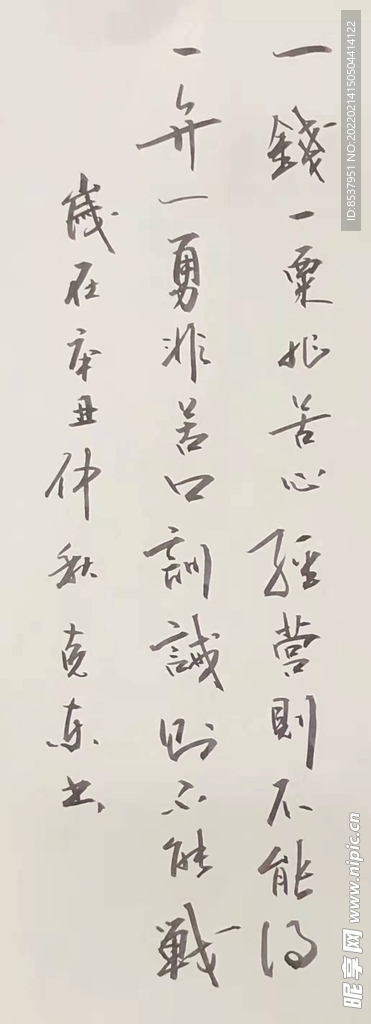 一錢一粟非苦心經營則不能得
一弁一勇非苦口訓誡則不能戰
歲在辛丑仲秋克東书
ID:8537951 NO:20220214150504414122
昵享网 www.nipic.cn